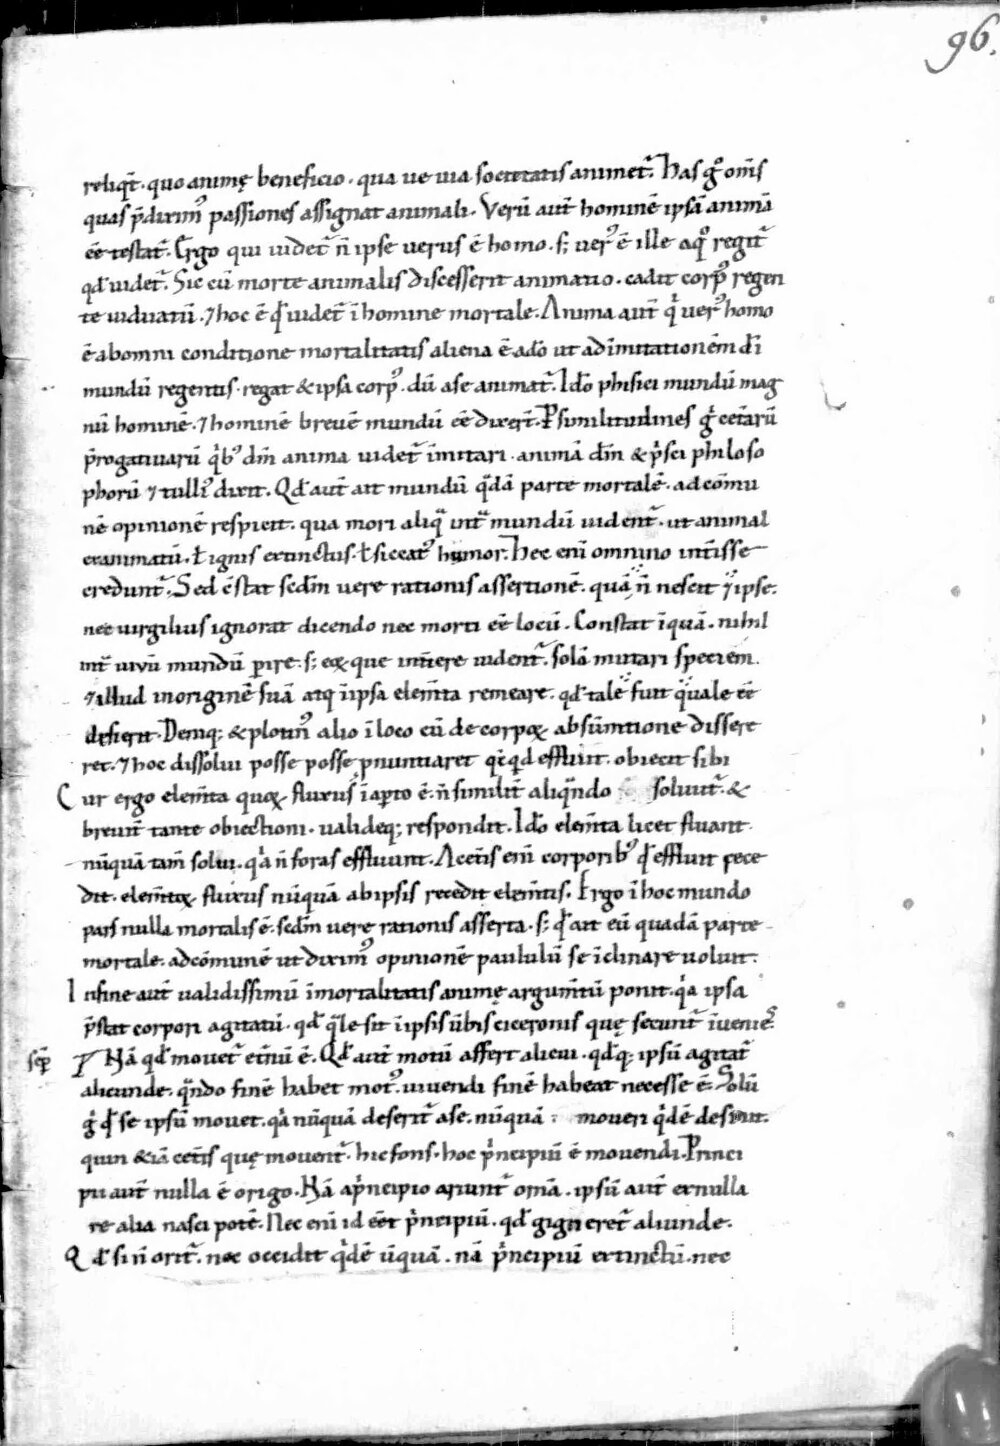 96.
reliq̄t. quo animę beneficio. qua ue uia societatis animet᷑. Has gͦ om̄s
quas p̄diximꝰ passiones assignat animali. Verū aut̄ hominē ipsā animā
eē testat᷑. Ergo qui uidet᷑ n̄ ipse uerus ē homo. s; uerꝰ ē ille aqͦ regit᷑
qđ uidet᷑. Sic cū morte animalis discesserit animatio. cadit corpꝰ regen
te uiduatū. ⁊ hoc ē qđ uidet᷑ ī homine mortale. Anima aut̄ qͥ uerꝰ homo
ē abomni conditione mortalitatis aliena ē adō ut ad imitationēm dī
mundū regentis. regat & ipsa corpꝰ. dū ase animat᷑. Idō phisici mundū mag
nū hominē. ⁊ hominē breuē mundū eē dixert̄. P similitudines gͥ cet̄arū
p̄rogatiuarū qͥbꝰ dm̄ anima uidet᷑ īmitari. animā dm̄ & pͥsci philoso
phorū ⁊ tulliꝰ dixit. Qđ aut̄ ait mundū qͣdā parte mortalē. ad cōmu
nē opinionē respicit. qua mori aliqͣ int̄ͣ mundū uident᷑. ut animal
exanimatū. ł ignis extinctus. ł siccatꝰ humor. Hec eni omnino int̄isse
credunt᷑. Sed c̄stat scđm uere rationis assertionē. quā n̄ nescit ⁊ ipse.
nec uirgilius ignorat dicendo nec morti eē locū. Constat īquā. nihil
int᷑ uiuū mundū ꝑire. s; eoꝝ que int̄iere uident᷑. solā mutari speciem.
⁊ illud in originē suā atq; ī ipsa elem̄ta remeare. qđ tale fuit qͣale eē
desierit. Deniq; & plotinꝰ alio ī loco cū de corpoꝝ absūmtione dissere
ret. ⁊ hoc dissolui posse posse ꝓnuntiaret qͥcqͥd effluit. obiecit sibi
Cur ergo elem̄ta quoꝝ fluxus ī aꝑto ē. n̄ similit̄ aliqͣndo soluunt᷑. &
breuit̄ tante obiectioni. valideq; respondit. Idō elem̄ta licet fluant
nūquā tam̄ solui. qͥa n̄ foras effluunt. A cet̄is eni corporibꝰ qđ effluit rece
dit. elem̄toꝝ fluxus nūquā abipsis recedit elem̄tis. Ergo ī hoc mundo
pars nulla mortalis ē. scđm uere rationis asserta. s; qđ ait eū quadā parte
mortale. ad cōmunē ut diximꝰ opinionē paululū se īclinare uoluit.
Infine aut̄ validissimū īmortalitatis animę argum̄tū ponit. qͥa ipsa
p̄stat corpori agitatū. qđ qͣle sit ī ipsis ūbis ciceronis quę secunt᷑ īuenieˢ.
Nā qđ mouet᷑ et̄nū ē. Qđ aut̄ motū affert alicui. qđq; ipsū agitat᷑
alicunde. qͣndo finē habet motꝰ. uiuendi finē habeat necesse ē. Solū
gͥ qđ se ipsū mouet. qͥa nūquā deserit᷑ ase. nūquā moueri qͥdē desinit.
quin & iā cet̄is quę mouent᷑. hic fons. hoc pͥncipiū ē mouendi. Princi
pii aut̄ nulla ē origo. Nā apͥncipio oriunt᷑ om̄a. ipsū aut̄ exnulla
re alia nasci potē. Nec eni id eēt pͥncipiū. qđ gigneret᷑ aliunde.
Qđ si n̄ orit᷑. nec occidit qͥdē ūquā. nā pͥncipiū extinctū. nec